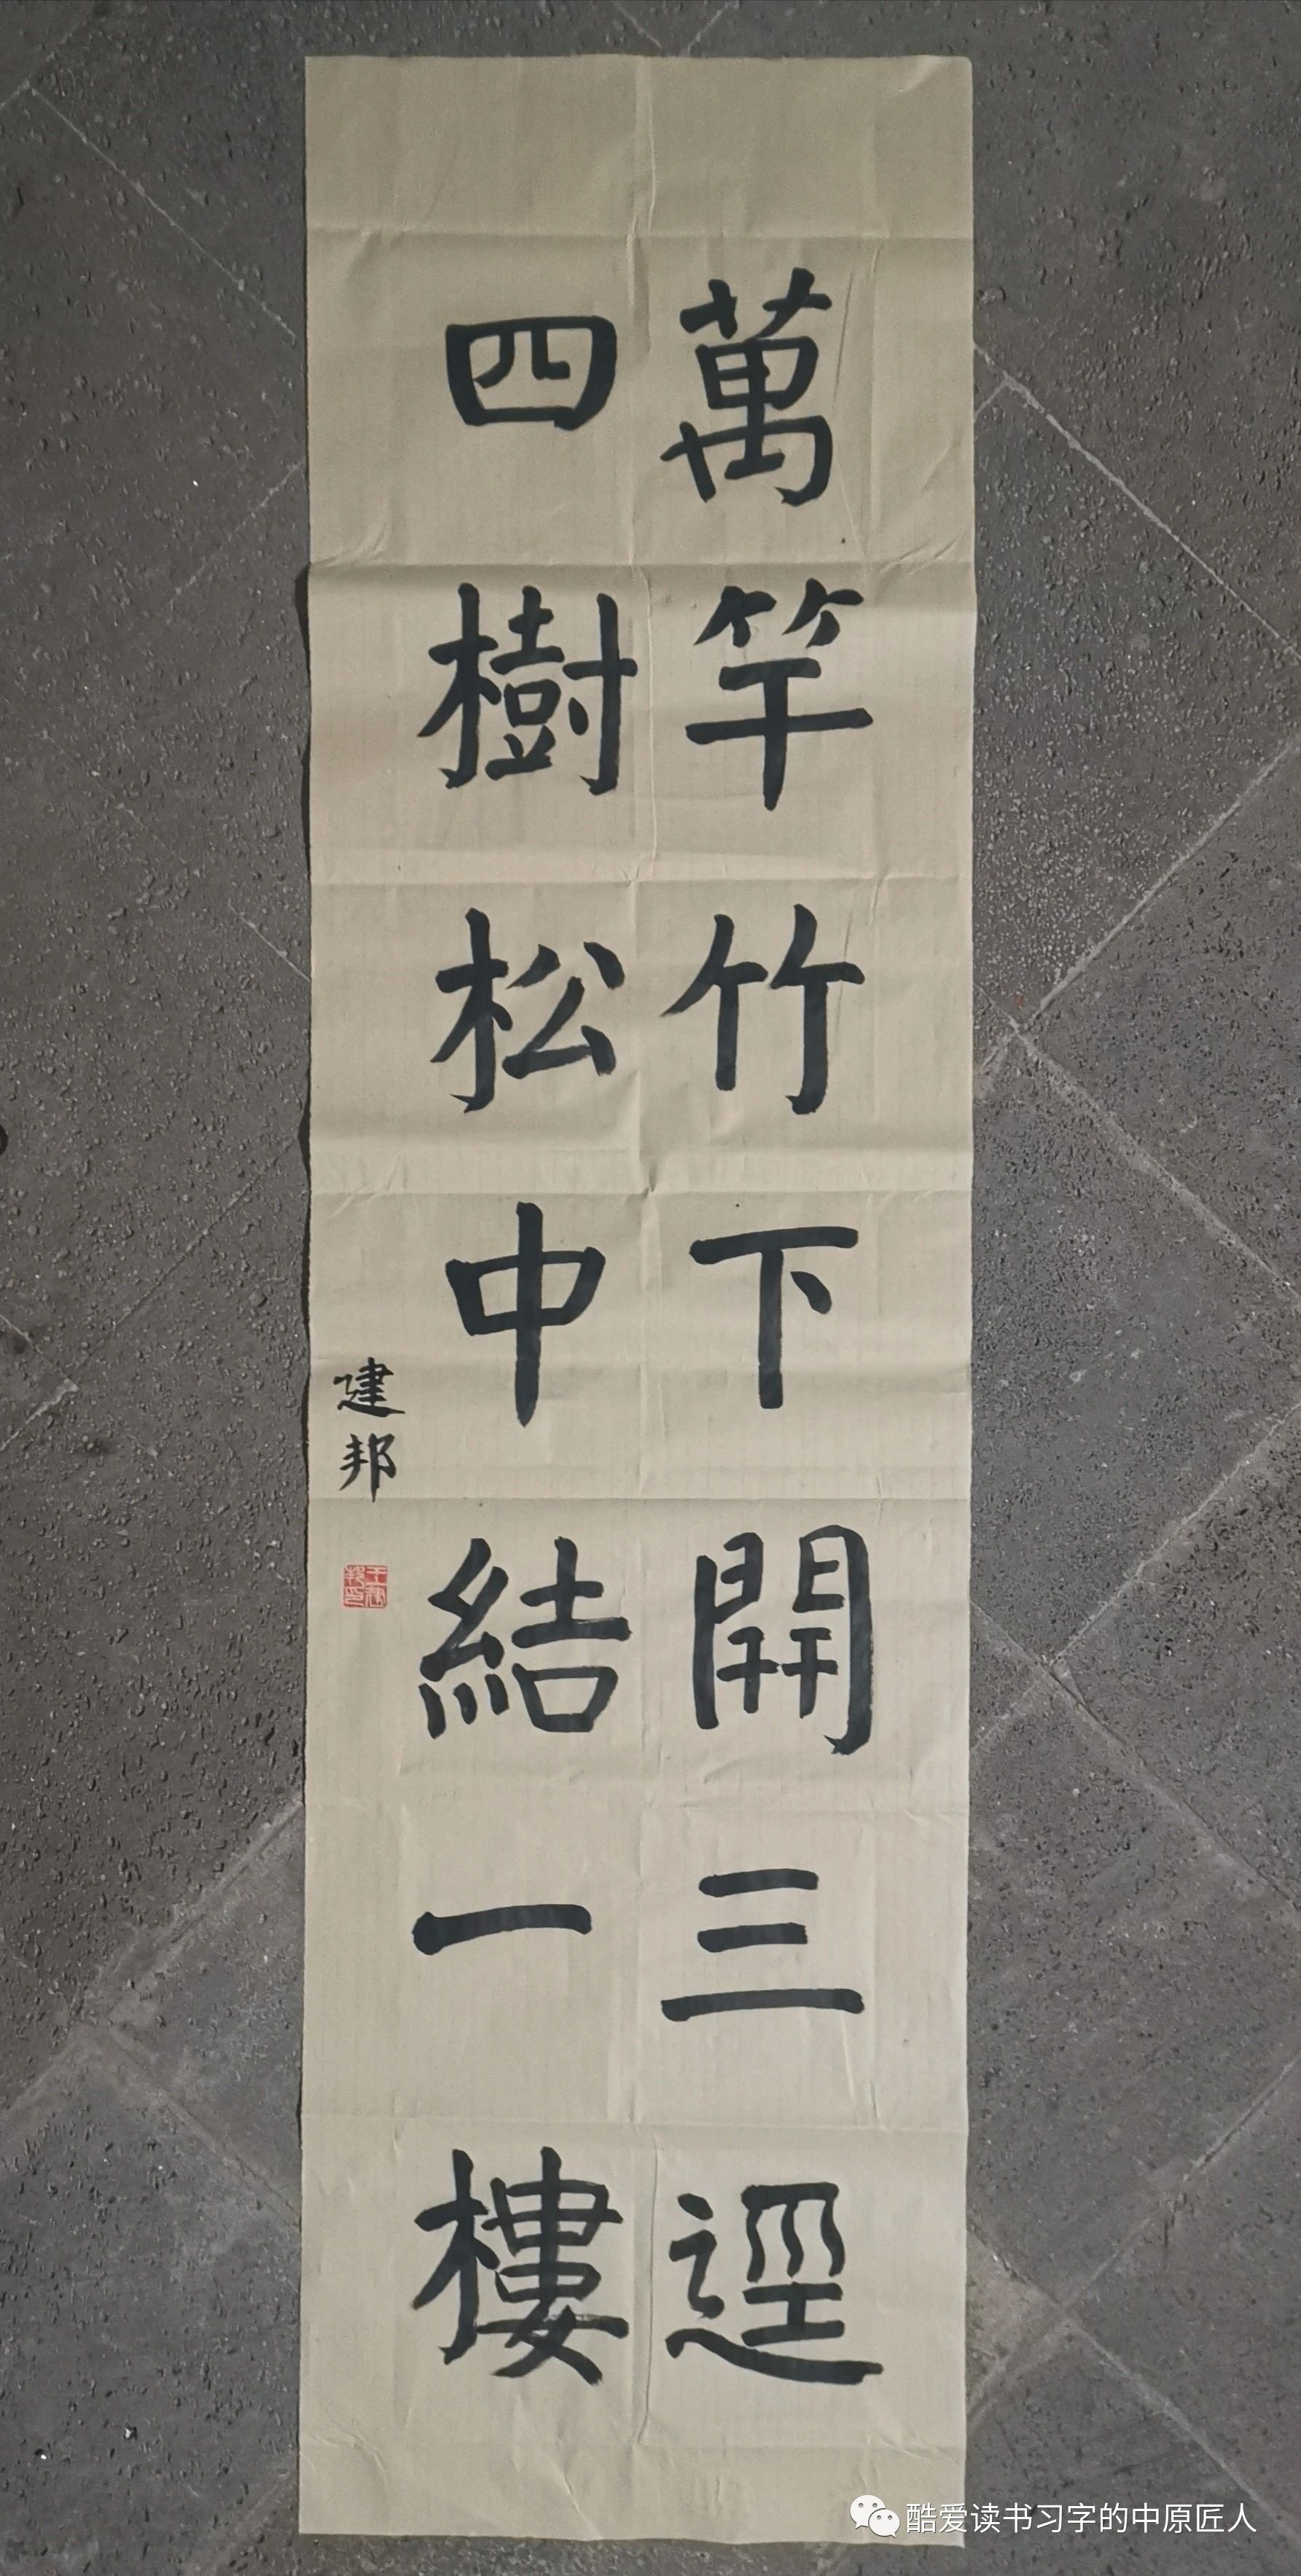 萬竿竹下開三逕
四樹松中結一樓
建邦
酷爱读书习字的中原匠人